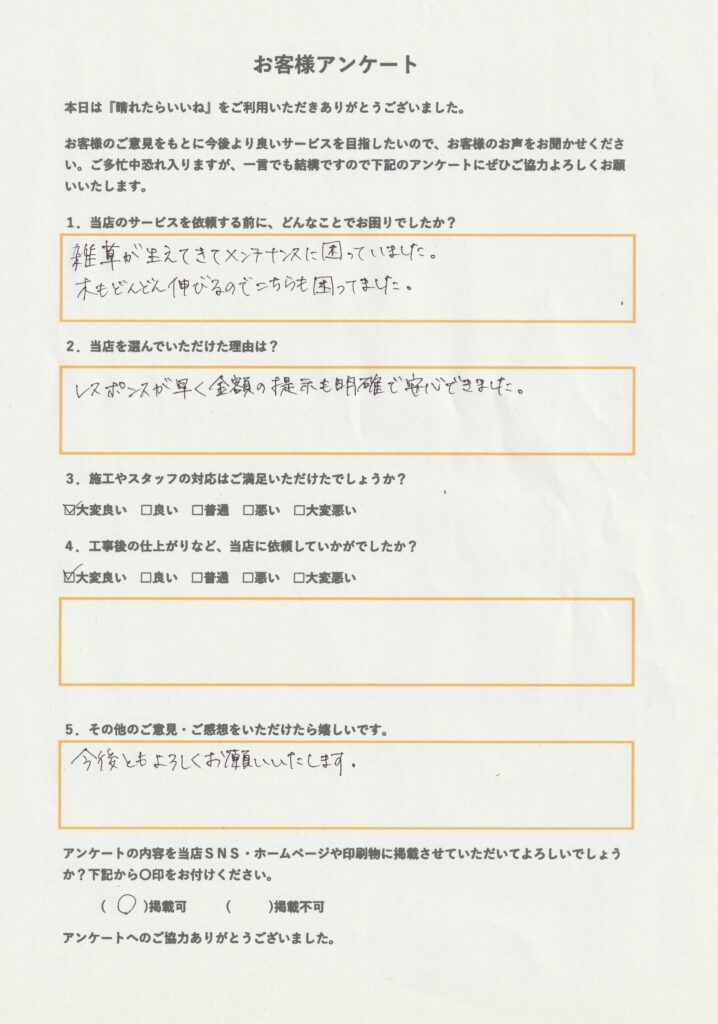 お客様アンケート
本日は『晴れたらいいね』をご利用いただきありがとうございました。
お客様のご意見をもとに今後より良いサービスを目指したいので、お客様のお声をお聞かせくださ
い。ご多忙中恐れ入りますが、一言でも結構ですので下記のアンケートにぜひご協力よろしくお願
いいたします。
1．当店のサービスを依頼する前に、どんなことでお困りでしたか？
雑草が生えてきてメンテナンスに困っていました。
木もどんどん伸びるのでこちらも困ってました。
2．当店を選んでいただけた理由は？
レスポンスが早く金額の提示も明確で安心できました。
3．施工やスタッフの対応はご満足いただけたでしょうか？
☑大変良い　□良い　□普通　□悪い　□大変悪い
4．工事後の仕上がりなど、当店に依頼していかがでしたか？
☑大変良い　□良い　□普通　□悪い　□大変悪い
5．その他のご意見・ご感想をいただけたら嬉しいです。
今後ともよろしくお願いいたします。
アンケートの内容を当店ＳＮＳ・ホームページや印刷物に掲載させていただいてよろしいでしょう
か？下記から〇印をお付けください。
(　〇　)掲載可　　　(　　　)掲載不可
アンケートへのご協力ありがとうございました。